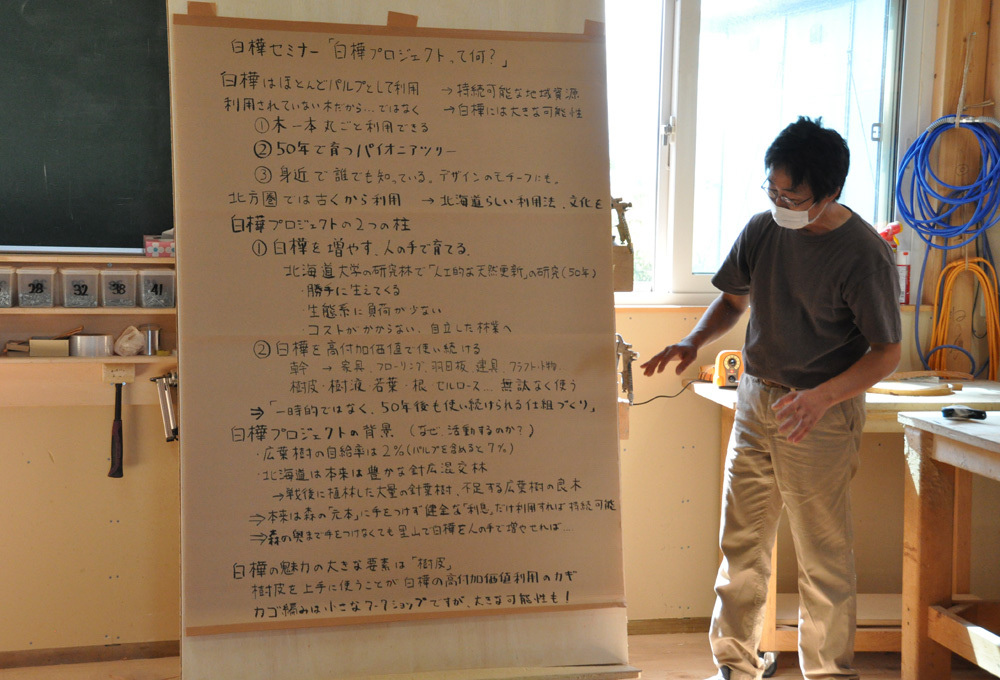 白樺セミナー「白樺プロジェクトって何?」
白樺はほとんどパルプとして利用 →持続可能な地域資源
利用されていない木だから…ではなく →白樺には大きな可能性
①木一本丸ごと利用できる
②50年で育つパイオニアツリー
③身近で誰でも知っている。デザインのモチーフにも。
北方圏では古くから利用 →北海道らしい利用法、文化を
白樺プロジェクトの2つの柱
①白樺を増やす、人の手で育てる、
北海道大学の研究林で「人工的な天然更新」の研究(50年)
・勝手に生えてくる
・生態系に負荷が少ない
・コストがかからない、自立した林業へ
②白樺を高付加価値で使い続ける
幹 → 家具、フローリング、羽目板、建具、クラフト・小物
樹皮・樹液・若葉・根・セルロース…無駄なく使う
⇒「一時的ではなく、50年後も使い続けられる仕組づくり」
白樺プロジェクトの背景 (なぜ、活動するのか?)
・広葉樹の自給率は2%(パルプを含めると7%)
・北海道は本来は豊かな針広混交林
→戦後に植林した大量の針葉樹、不足する広葉樹の良木
⇒本来は森の「元本」に手をつけず健全な「利息」だけ利用すれば持続可能
⇒森の奥まで手をつけなくても里山で白樺を人の手で増やせれば…
白樺の魅力の大きな要素は「樹皮」
樹皮を上手に使うことが白樺の高付加価値利用のカギ
カゴ編みは小さなワークショップですが、大きな可能性も!
28
32
38
41